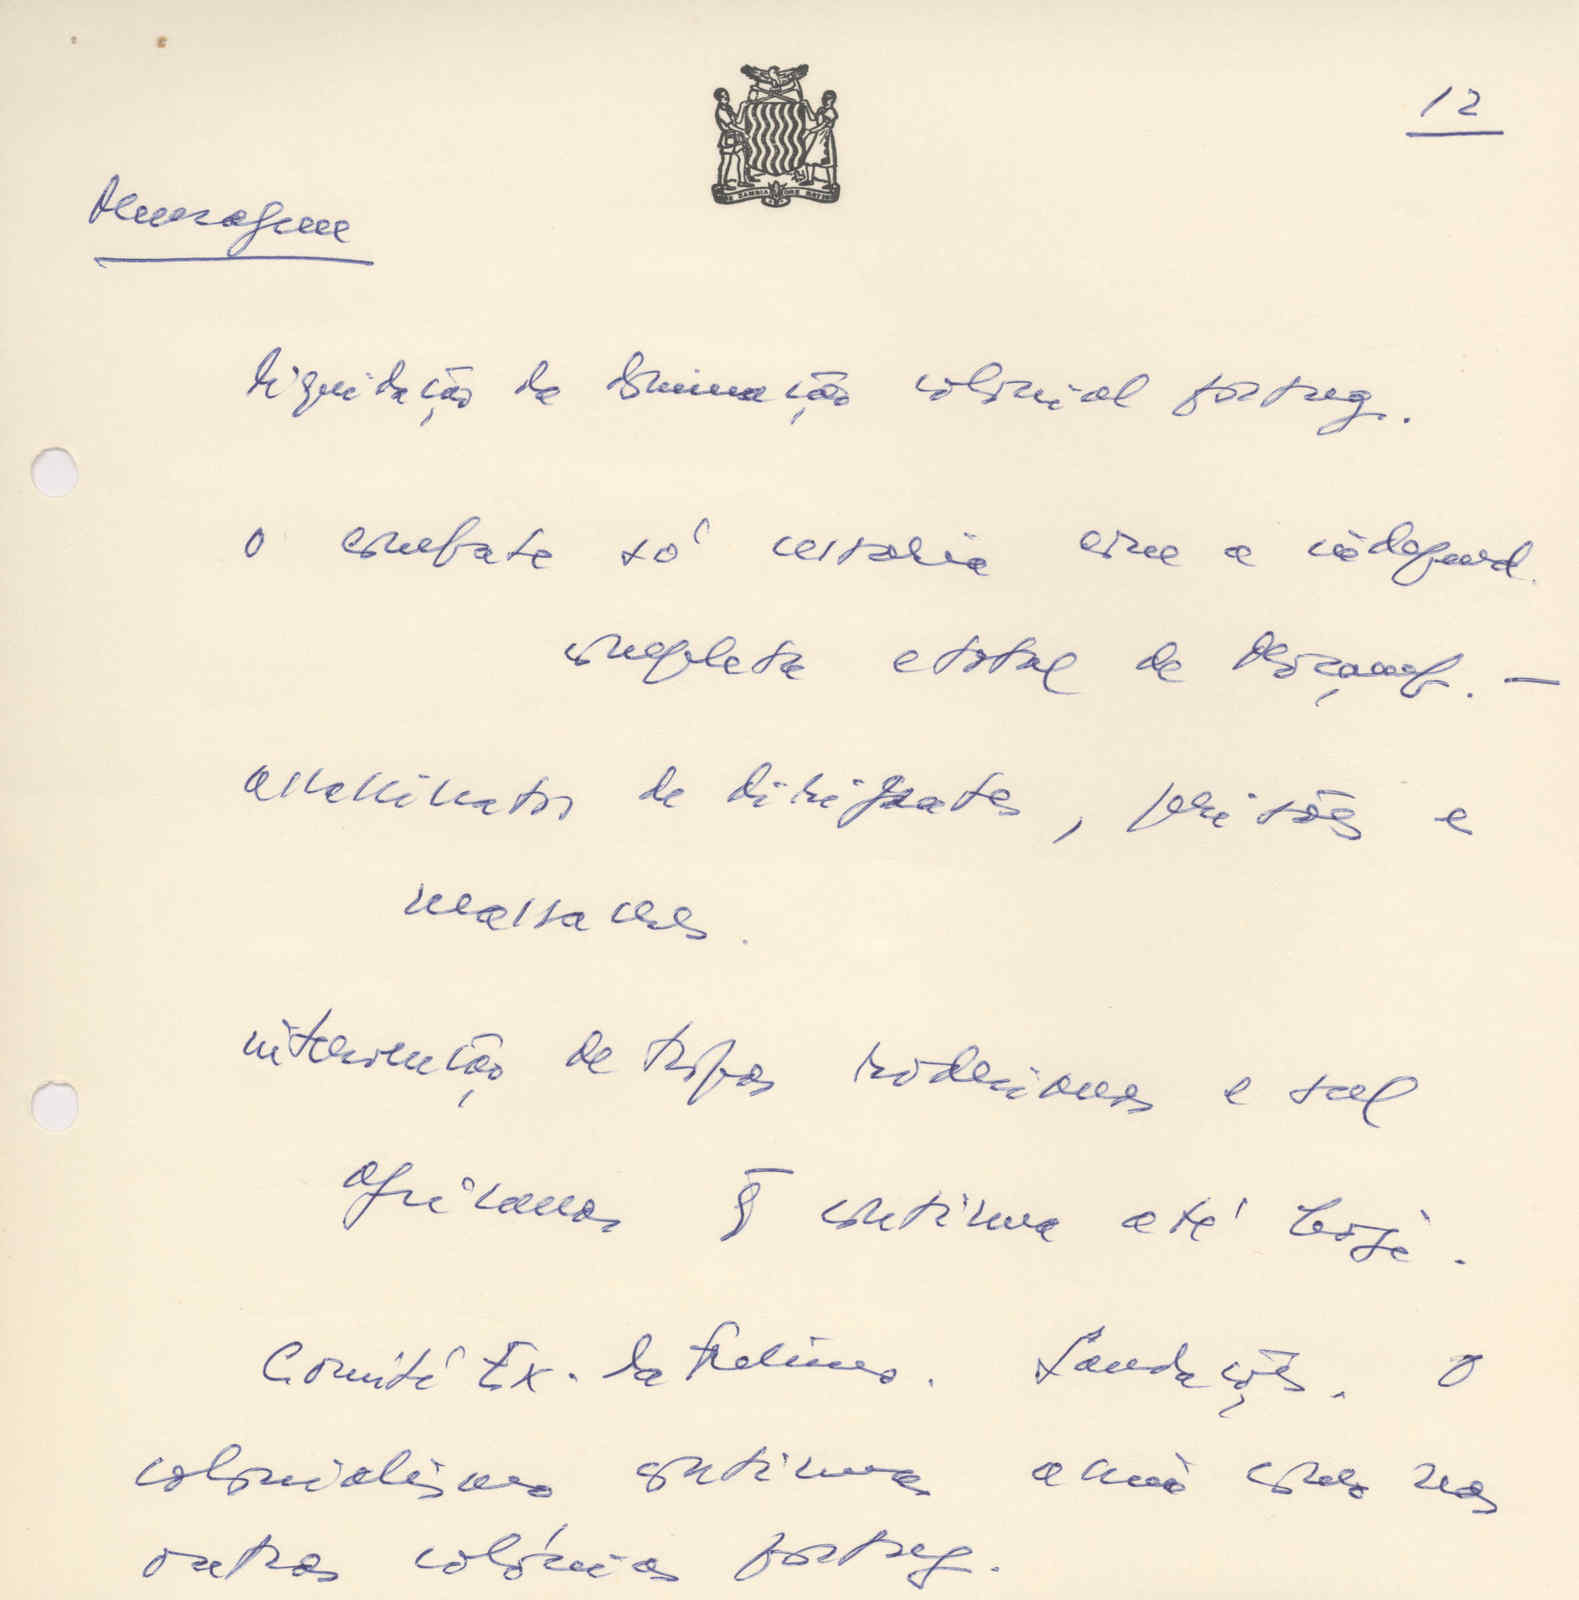 12
Mensagem
Liquidação da dominação colonial portug.
o combate só cessaria com a independ.
completa e total de Moçamb. —
assassinatos de dirigentes, prisões e
massacres.
intervenção de tropas rodesianas e sul
africanas q̄ continua até hoje.
Comité Ex. da Frelimo. Saudações. O
colonialismo continua como nas
outras colónias portug.